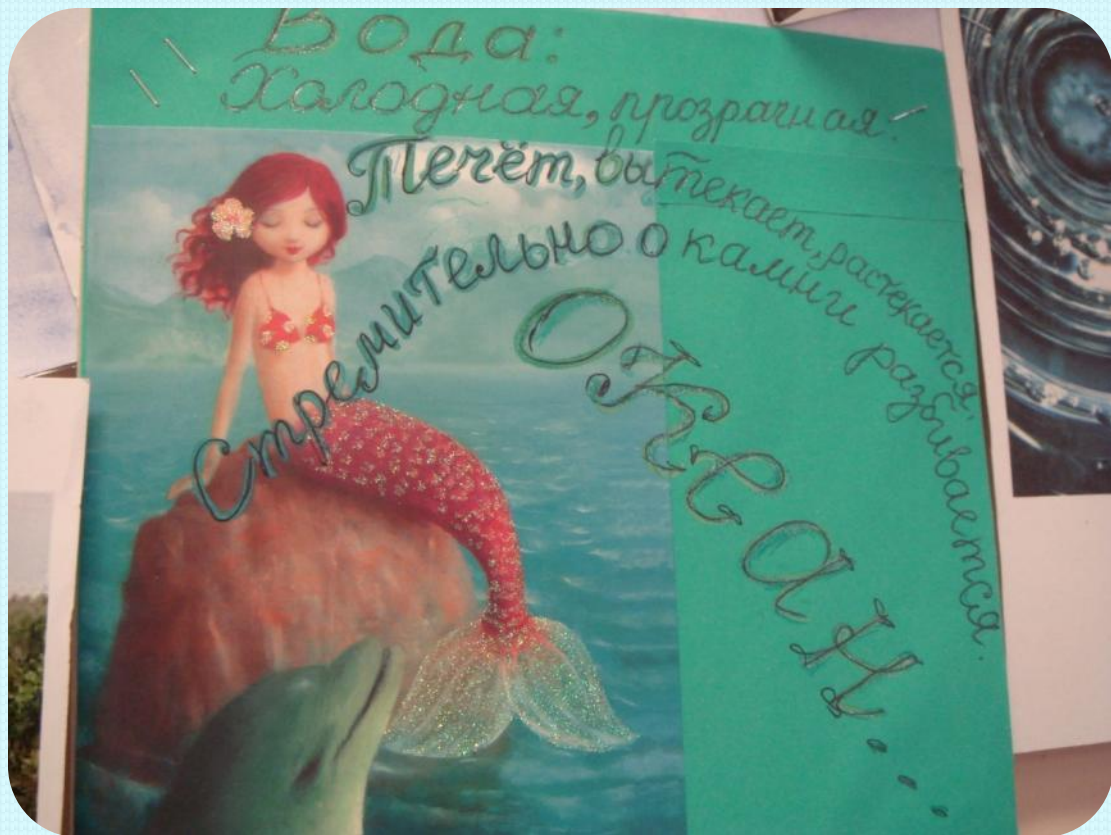 Вода:
Холодная, прозрачная.
Течёт, вытекает, растекается,
Стремительно о камни разбивается.
ОКеан...